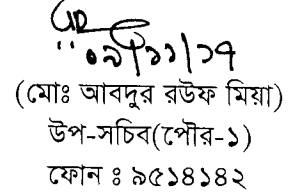 ০৯/১১/১৭
(মোঃ আবদুর রউফ মিয়া)
উপ-সচিব(পৌর-১)
ফোন ঃ ৯৫১৪১৪২